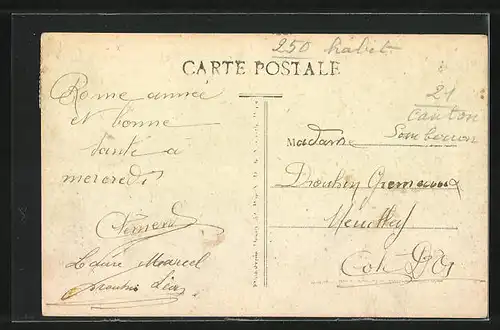 250 habit.
CARTE POSTALE
21
canton
Sombernon
Bonne année
et bonne
santé a
mercredi
Clément
Laure Marcel
Léa
Madame
Drouhin
Côte D'Or